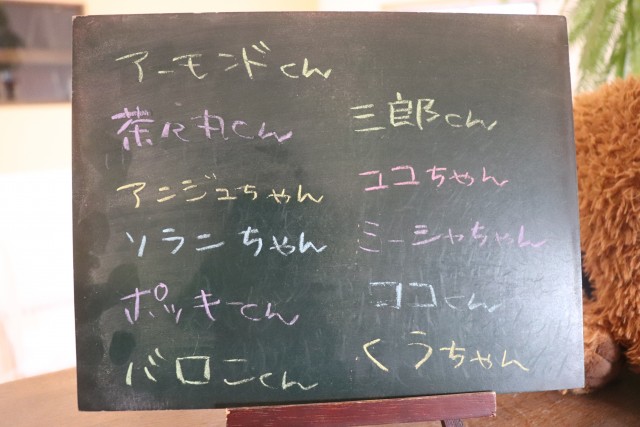 アーモンドくん
茶々丸くん
アンジュちゃん
ソラニちゃん
ポッキーくん
バロンくん
三郎くん
ココちゃん
ミーシャちゃん
ココくん
くうちゃん